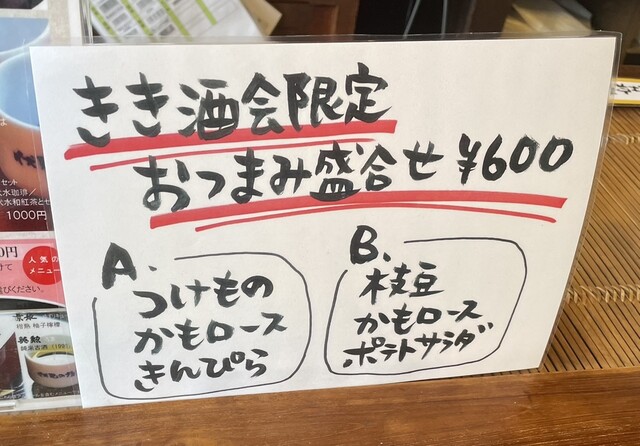 きき酒会限定
おつまみ盛合せ ¥600
A.
つけもの
かもロース
きんぴら
B.
枝豆
かもロース
ポテトサラダ
セット
水珈琲/
水和紅茶とセ
1000円
0円
人気の
メニュー
けて
びください。